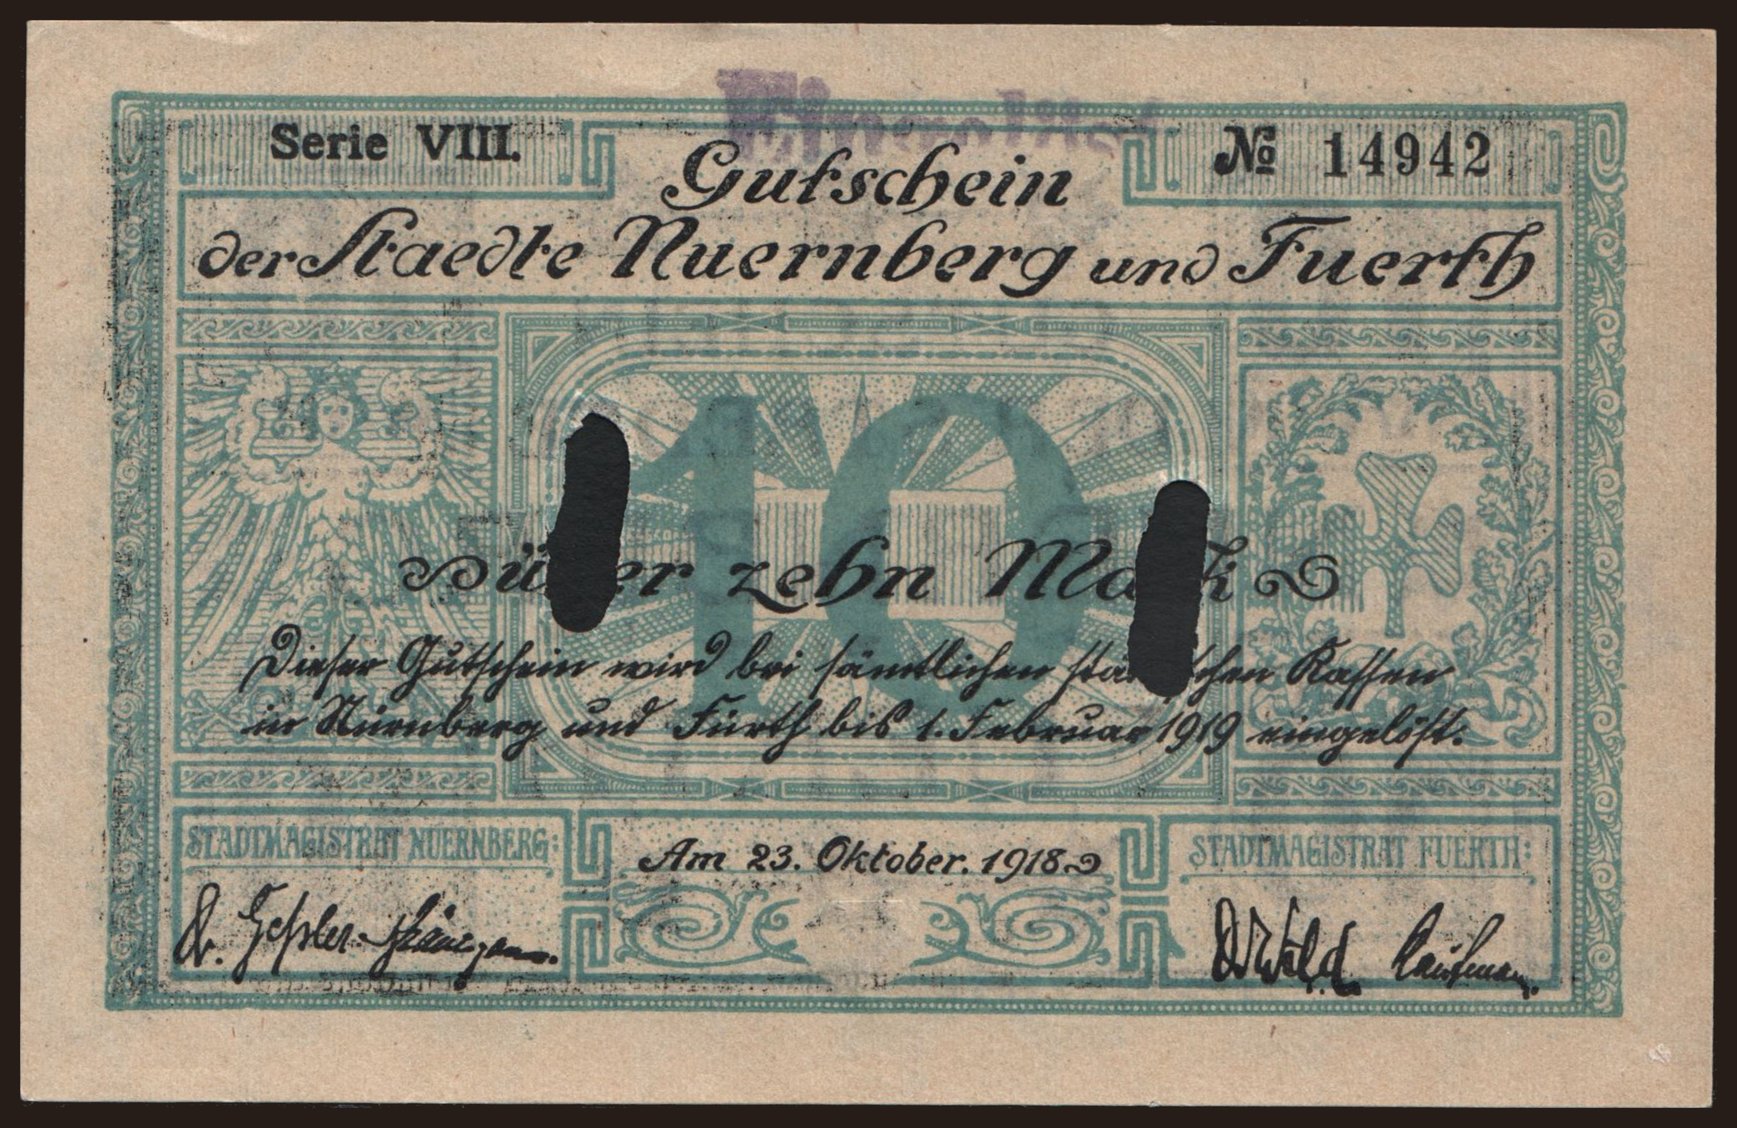 Eingelöst
Serie VIII.
№ 14942
Gutschein
der Staedte Nuernberg und Fuerth
10
zehn
Dieser Gutschein wird bei sämtlichen Kassen
in Nürnberg und Fürth bis 1. Februar 1919 eingelöst.
STADTMAGISTRAT NUERNBERG:
Am 23. Oktober. 1918
STADTMAGISTRAT FUERTH:
Dr. Geßler
Dr Wild